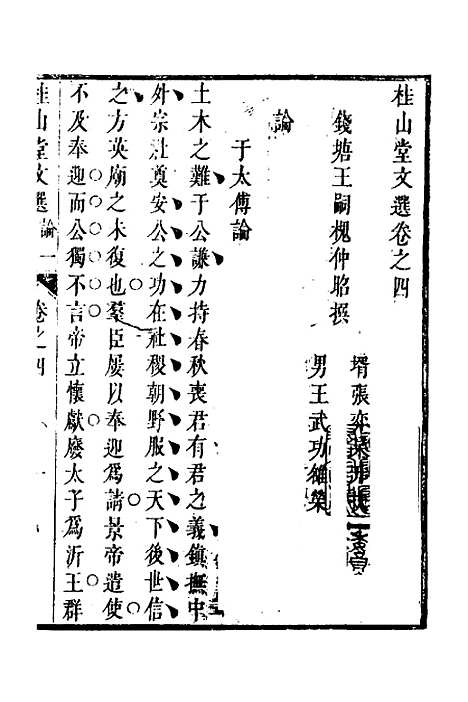 桂山堂文選卷之四
錢塘王嗣槐仲昭撰
壻張
男王武功維榮
論
于太傅論
土木之難于公謙力持春秋喪君有君之義鎮撫中
外宗社奠安公之功在社稷朝野服之天下後世信
之方英廟之未復也羣臣屢以奉迎為請景帝遣使
不及奉迎而公獨不言帝立懷獻廢太子為沂王群
桂山堂文選 論一 卷之四